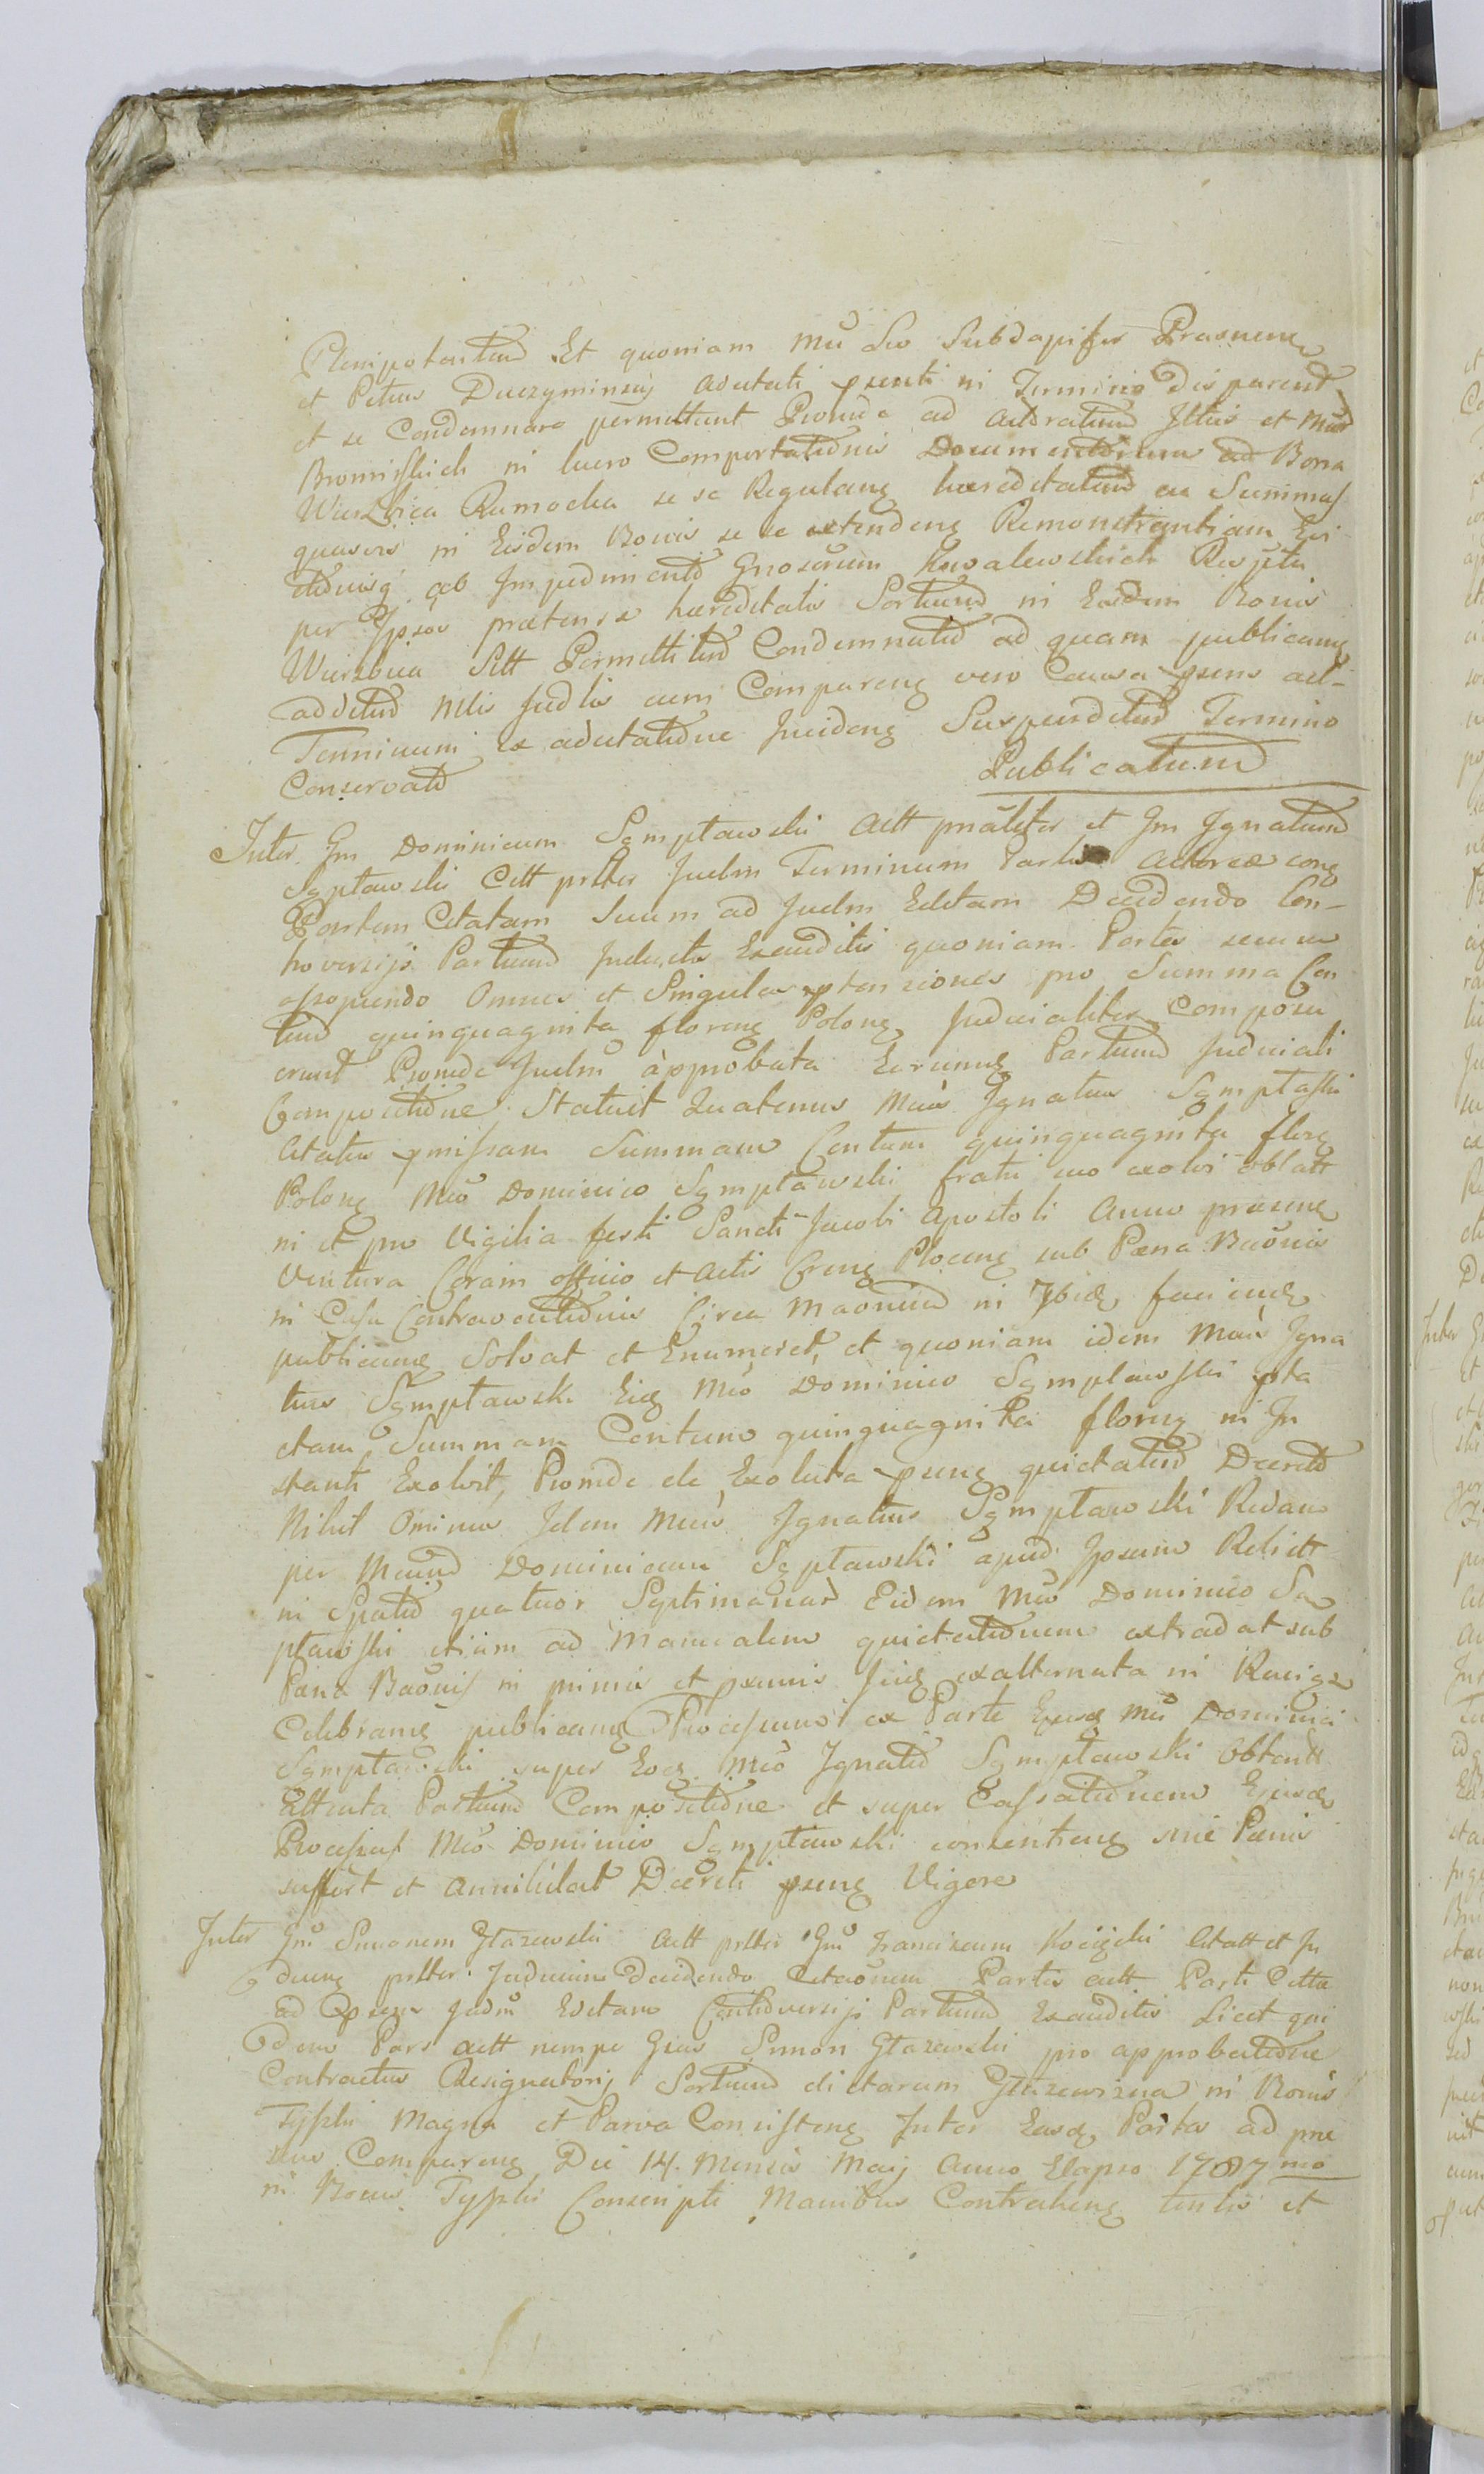 Plenipotentum Et quoniam Mci Leo Subdapifer Prasnen
et Petrus Duczyminsky adcitati psenti in Termino disparent
et se Condemnare permittunt Proinde ad adcitatum Illius et Mcor
Bromirskich in lucro Comportationis Documentorum ad Bona
Wierzbica Rumocka se se Regulang hæreditatum ac Summas
quasvis in Eisdem Bonis se se extendeng Remonstrantiam Evi
ctionisq ab Impedimento Gnosorum Kowalewskich Respctu
per Ipsos prætensæ hæreditatis Sortium in Eisdem Bonis
Wierzbica Sitt Permittitur Condemnatio ad quam publicang
additur Mtlis Judlis cum Compareng vero Causa psens ad-
Terminum ex adcitatione Incideng Suspenditur Termino
Conservato Publicatum
Inter Gm Dominicum Sgmptawski Actt prāliter et Gm Ignatium
Sgptawski Citt prlter Judm Terminum Partis Actoreæ cong
Partem Citatam Suum ad Judm Editam Decidendo Con-
troversijs Partium Inductis Exauditis quoniam Partes secum
assopiendo Omnes et Singulas ptensiones pro Summa Cen
tum quinquaginta floreng Polong Judicialiter Composu
erunt Proinde Judm approbata Earumq Partium Judiciali
Compositione Statuit Quatenus Mcus Ignatius Sgmptaski
Citatus pmissam Summam Centum quinquaginta flong
Polong Mco Dominico Sgmptawski fratri suo exolvi oblatt
in et pro Vigilia festi Sancti Jacobi Apostoli Anno præseng
Ventura Coram officio et Actis Creng Ploceng sub Pæna Baōnis
in Casu Contraventionis Circa Maōnium in Ibidg faciendg
publicang Solvat et Enumeret, et quoniam idem Mcus Igna
tius Sgmptawski Eidg Mco Dominico Sgmptawski pta
ctam Summam Centum quinquaginta floreng in In
stanti Exolvit, Proinde de Exoluta pseng quietatur Decreto
Nihil Ominus Idem Mcus Ignatius Sgmptawski
per Mcum Dominicum Sgptawski apud Ipsum Relictt
in Spatio quatuor Septimanar Eidem Mco Dominico Sgm
ptawski etiam ad Manualem quietationem extradat sub
Pæna Baōnis in primis et pxumis Judg exalternata in Raciąż
Celebrang publicang Processum ex Parte Ejusdg Mci Dominici
Sgmptawski super Eodg Mco Ignatio Sgmptawski Obtentt
Attenta Partium Compositione et super Cassationem Ejusdg
Processus Mco Dominico Sgmptawski consentieng sine Pænis
suffert et Annihilat Decreti pseng Vigore
Inter Gm Simonem Głazewski Actt prlter Gm Franciscum Kocięcki Citatt et In
ducng prlter Judicium Decidendo Citaōnem Partis actt Parti Cittæ
ad psens Judm Editam Controversijs Partium Exauditis Licet qui
dem Pars actt nempe Gsus Simon Głazewski pro approbatione
Contractus Resignatorij Sortium dictarum Głazewizna in Bonis
Tysski Magna et Parva Consisteng Inter Easdg Partes ad præ
sens Compareng Die 14. Mensis Maij Anno Elapso 1787mo
in Bonis Tysski Conscripti Manibus Contraheng tentis et